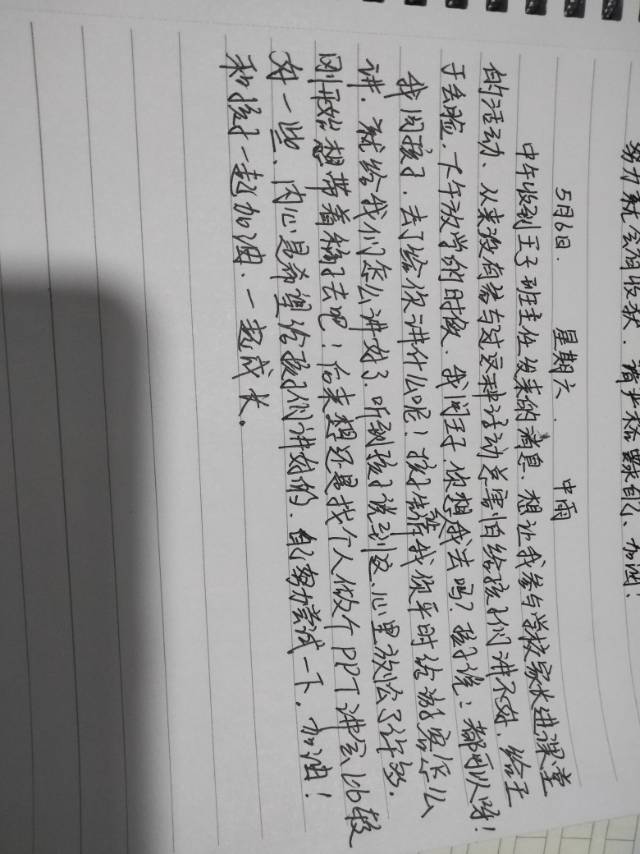 努力就会有收获．请严格要求自己、加油！
5月6日． 星期六． 中雨
中午收到王子班主任发来的消息．想让我参与学校家长进课堂
的活动、从来没有参与过这种活动总害怕给孩子们讲不好．给王
子丢脸．下午放学的时候．我问王子．你想我去吗？孩子说：都可以呀！
我问孩子．去了给你讲什么呢！孩子告诉我你平时给游客怎么
讲．就给我们怎么讲好了．听到孩子说到这心里放松了许多．
刚开始想带着稿子去吧！后来想还是找个人做个PPT讲会比较
好一些、内心是希望给孩子们讲好的．自己努力尝试一下．加油！
和孩子一起加油．一起成长。